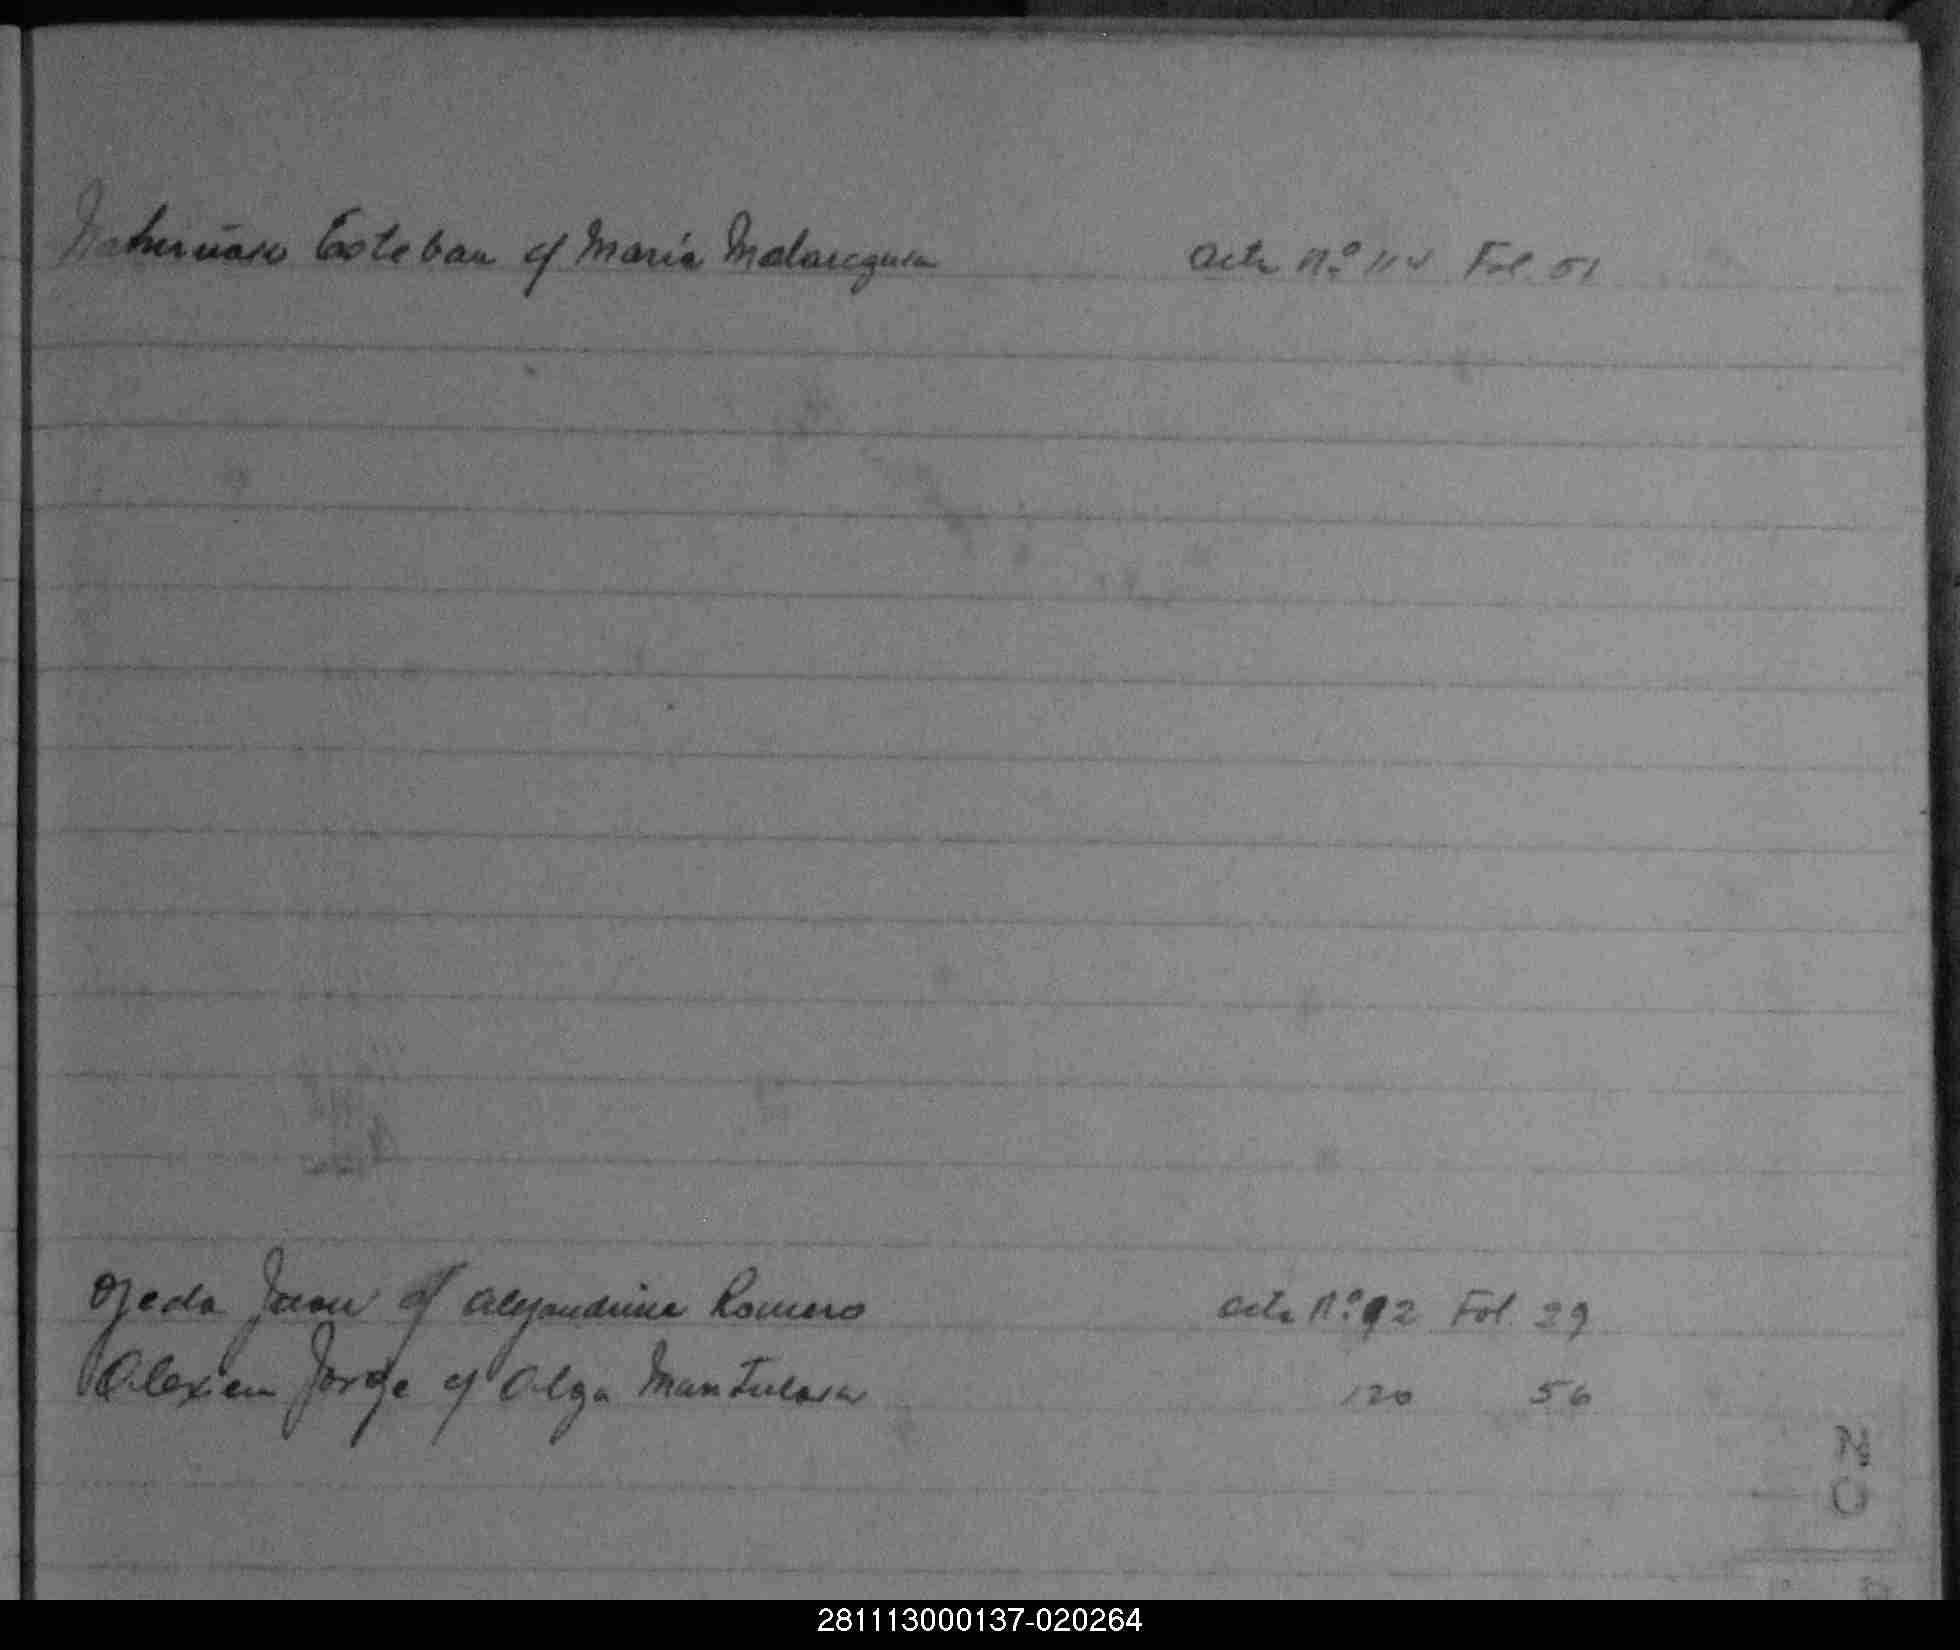 Esteban c/ María Acta Nº 114 Fol. 51
Ojeda Juan c/ Alejandrina Romero Acta Nº 92 Fol. 29
Jorge c/ Olga 120 56
N
O
281113000137-020264